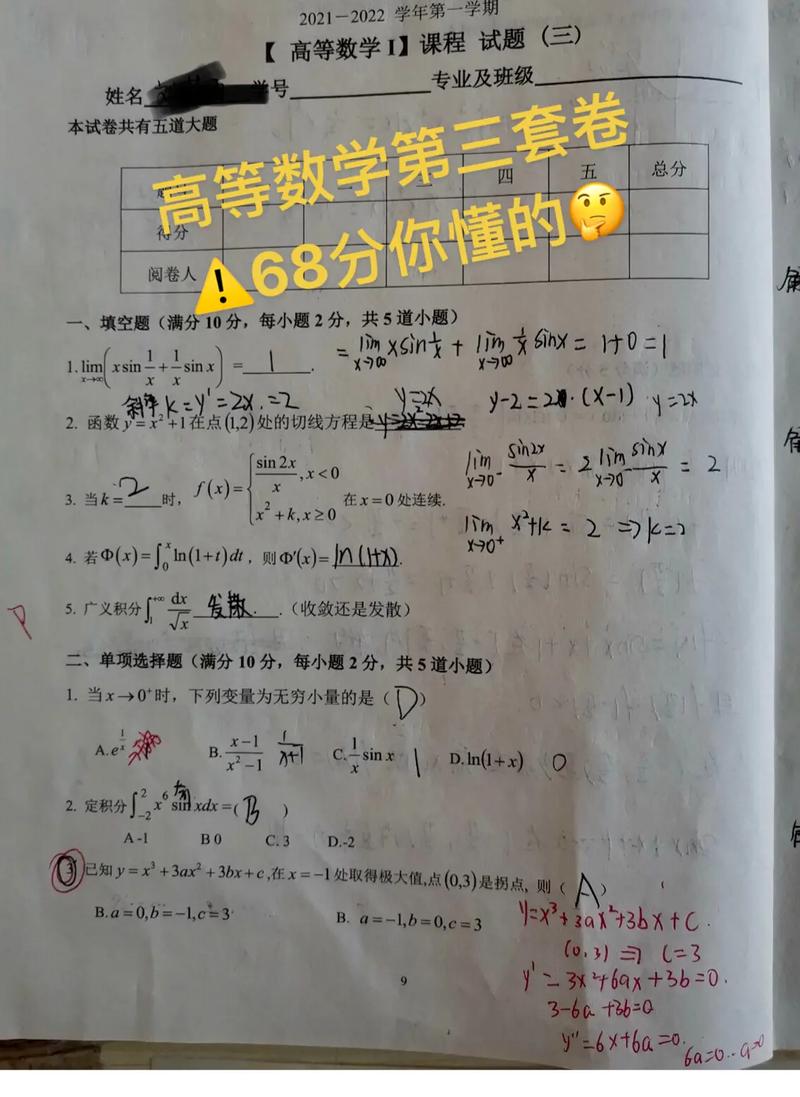 2021－2022 学年第一学期
【 高等数学 I】课程 试题（三）
姓名 学号 专业及班级
本试卷共有五道大题
四 五 总分
得分
阅卷人
高等数学第三套卷
⚠️68分你懂的🤔
一、填空题（满分 10 分，每小题 2 分，共 5 道小题）
1. lim x→∞ (x sin 1/x + 1/x sin x) = 1 .
= lim x→∞ x sin 1/x + lim x→∞ 1/x sin x = 1+0 = 1
斜率 k = y' = 2x = 2
y=2x
y-2=2·(x-1) y=2x
2. 函数 y = x² + 1 在点 (1,2) 处的切线方程是
lim x→0⁻ sin2x/x = 2 lim x→0⁻ sinx/x = 2
3. 当 k = 2 时， f(x) = { sin 2x / x , x < 0 ; x² + k, x ≥ 0 在 x = 0 处连续.
lim x→0⁺ x²+k = 2 ⇒ k=2
4. 若 Φ(x) = ∫₀ˣ ln(1+t) dt ，则 Φ'(x) = ln(1+x).
5. 广义积分 ∫₁⁺∞ dx/√x 发散 .（收敛还是发散）
二、单项选择题（满分 10 分，每小题 2 分，共 5 道小题）
1. 当 x → 0⁺ 时，下列变量为无穷小量的是（ D ）
A. e^(1/x) B. (x−1)/(x²−1) 1/(x+1) C. 1/x sin x 1 D. ln(1+x) 0
2. 定积分 ∫₋₂² x⁶ sin xdx =( B )
A -1 B 0 C. 3 D.-2
3 已知 y = x³ + 3ax² + 3bx + c ,在 x = −1 处取得极大值,点 (0,3) 是拐点, 则（ A ）
B. a = 0, b = −1, c = 3 B. a = −1, b = 0, c = 3
y=x³+3ax²+3bx+c.
(0,3) ⇒ c=3
y'=3x²+6ax+3b=0.
3-6a+3b=0
y''=6x+6a=0.
6a=0 ∴ a=0
9